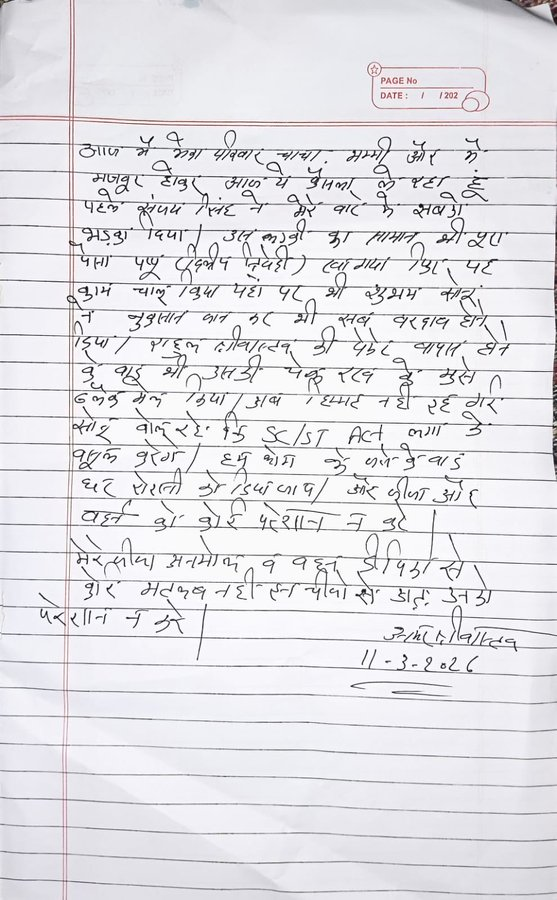 PAGE No
DATE : / /202
आज मैं मेरा परिवार चाचा. मम्मी और मैं
मजबूर होकर आज ये फैसला ले रहा हूं
पहले संजय सिंह ने मेरे बारे में सबको
भड़का दिया। का सामान भी पूरा
पैसा पप्पू (दिलीप त्रिवेदी) खा गया फिर यह
काम चालू किया यहां पर भी शुभम सोनू
ने नुकसान कर भी सब बरदाद होने
दिया। राहुल श्रीवास्तव की पेमेंट वापस होने
के बाद भी उसकी चेक रख के मुझे
ब्लैक मेल किया। अब हिम्मत नहीं रह गई
सोनू बोल रहे कि SC/ST Act लगा के
वसूल करेंगे। हम लोग के जाने के बाद
घर को दिया जाए। और जीजा और
बहन को कोई परेशान न करे।
मेरे जीजा अनमोल व बहन दीपिका से
कोई मतलब नहीं इन चीजो से उनको
परेशान न करे।
श्रीवास्तव
11-3-2026